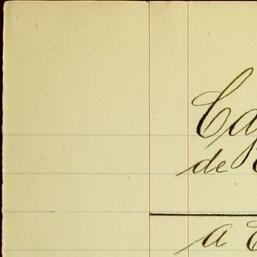 Ca
de
a